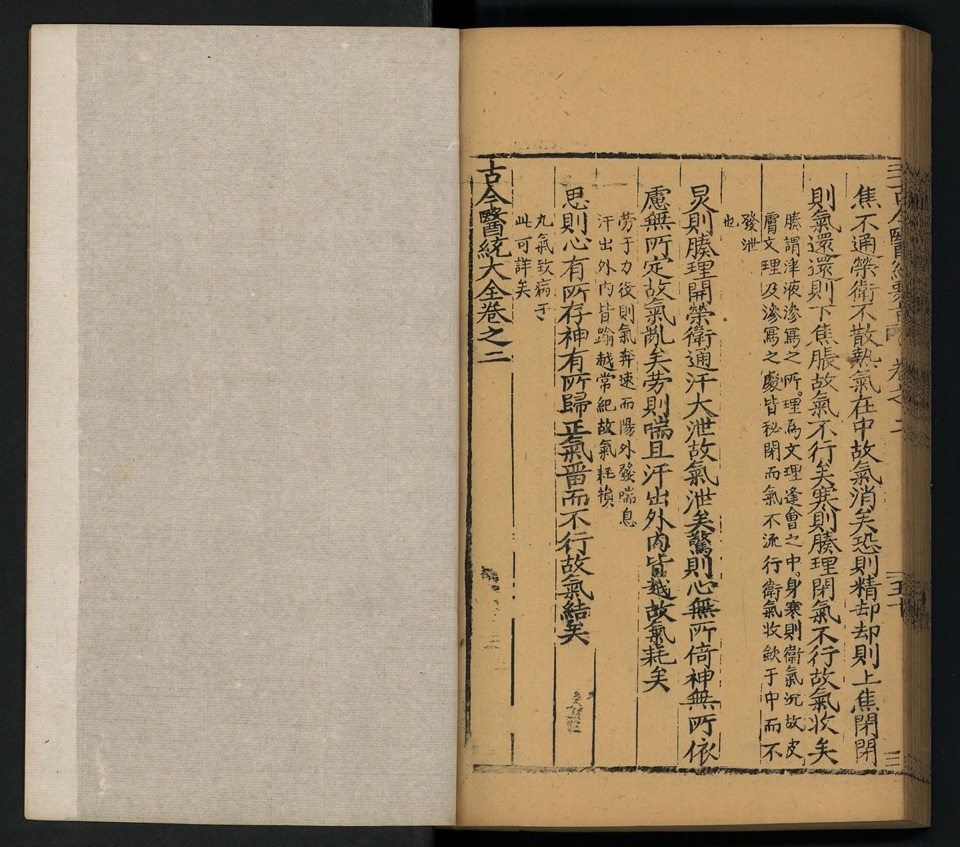 卷之二
五十
焦不通榮衛不散熱氣在中故氣消矣恐則精却却則上焦閉閉
則氣還還則下焦脹故氣不行矣寒則腠理閉氣不行故氣收矣
腠謂津液滲寫之所理爲文理逢會之中身寒則衛氣沉故皮
膚文理及滲寫之處皆秘閉而氣不流行衛氣收斂于中而不
發泄
也
炅則腠理開榮衛通汗大泄故氣泄矣驚則心無所倚神無所依
慮無所定故氣亂矣劳則喘且汗出外內皆越故氣耗矣
劳于力役則氣奔速而陽外發喘息
汗出外內皆踰越常紀故氣耗損
思則心有所存神有所歸正氣畱而不行故氣結矣
九氣致病于
此可詳矣
古今醫統大全卷之二